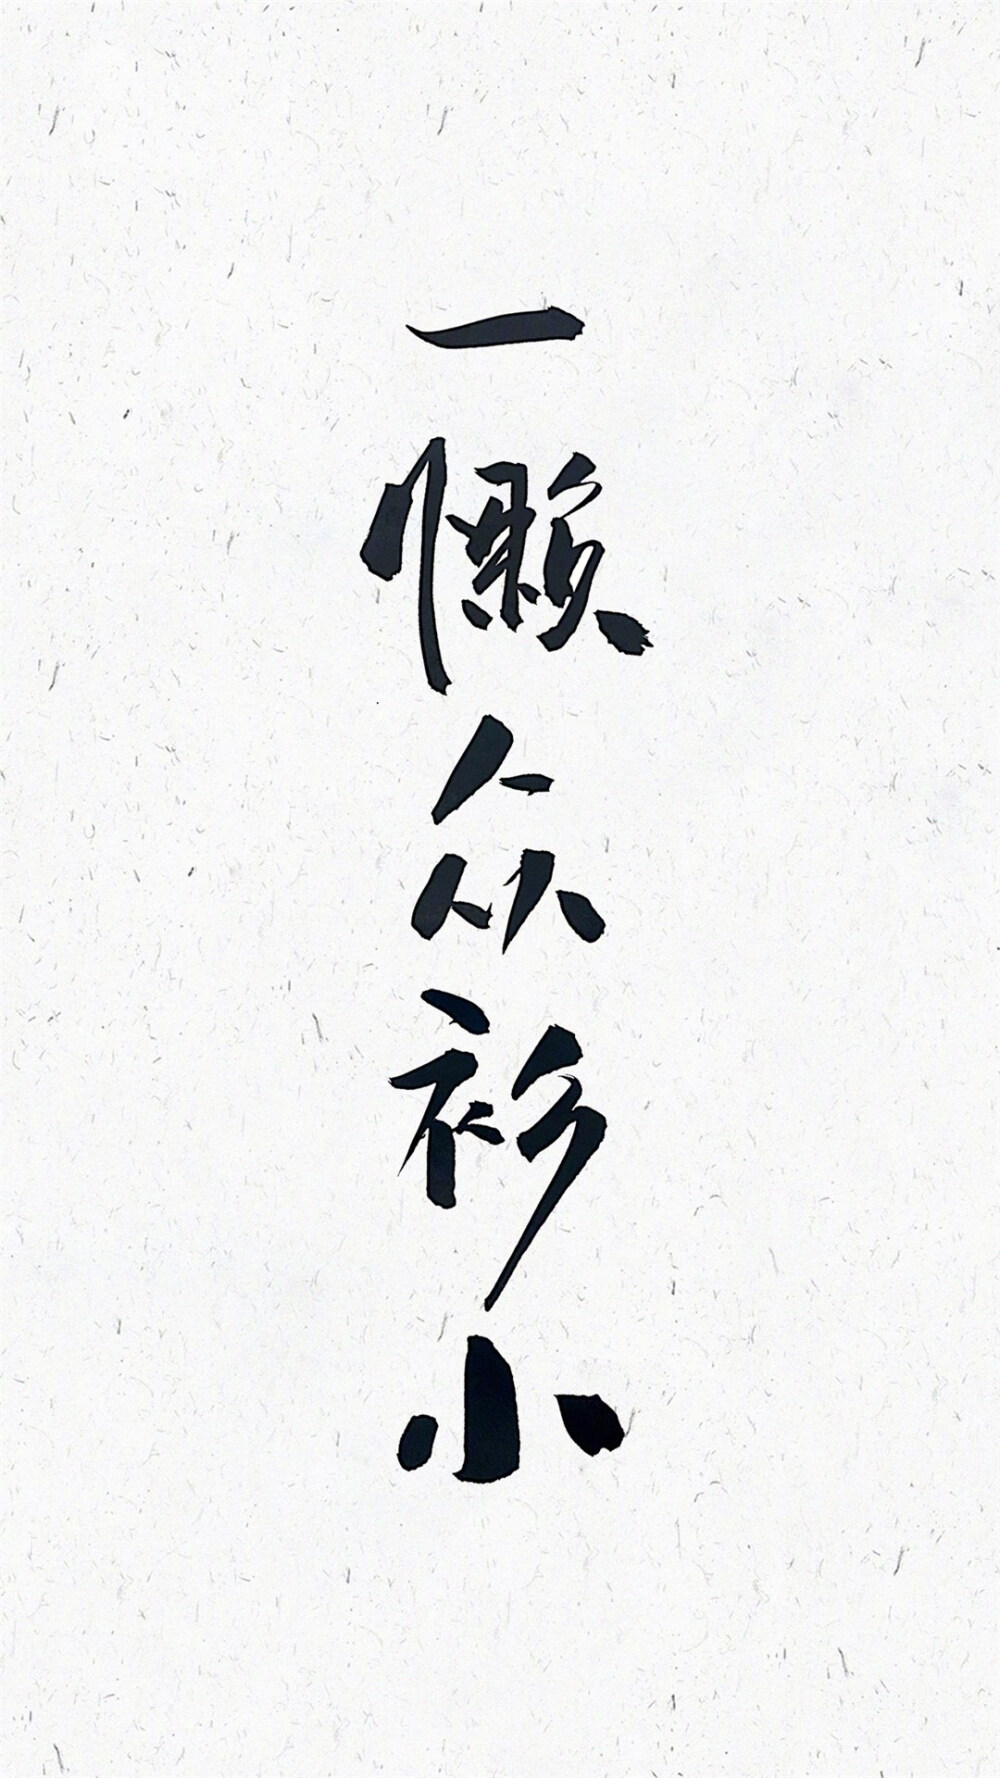 一懒众衫小